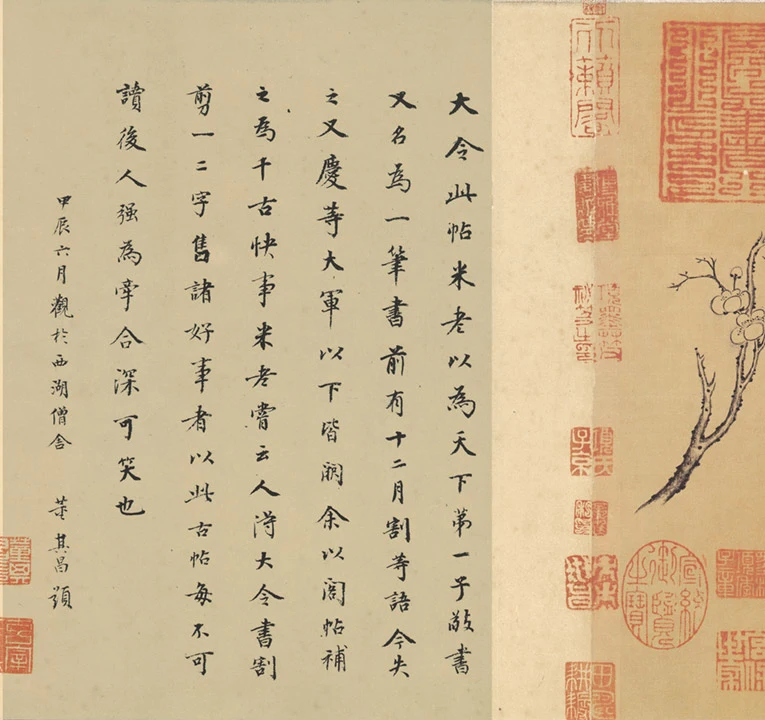 大令此帖米老以為天下第一子敬書
又名為一筆書前有十二月割等語今失
之又慶等大軍以下皆闕余以閣帖補
之為千古快事米老嘗云人淂大令書割
剪一二字售諸好事者以此古帖每不可
讀後人强為牽合深可笑也
甲辰六月觀於西湖僧舍 董其昌題
天籟閣
宣統御覽之寶